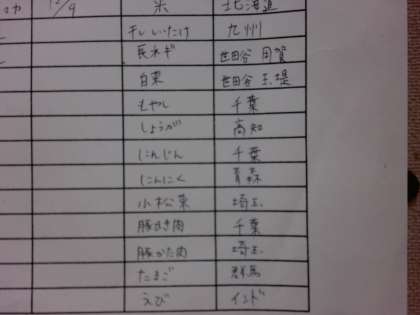 12/9 米 北海道
干しいたけ 九州
長ネギ 世田谷
白菜 世田谷 玉堤
もやし 千葉
しょうが 高知
にんじん 千葉
にんにく 青森
小松菜 埼玉
豚ひき肉 千葉
豚かた肉 埼玉
たまご 群馬
えび インド